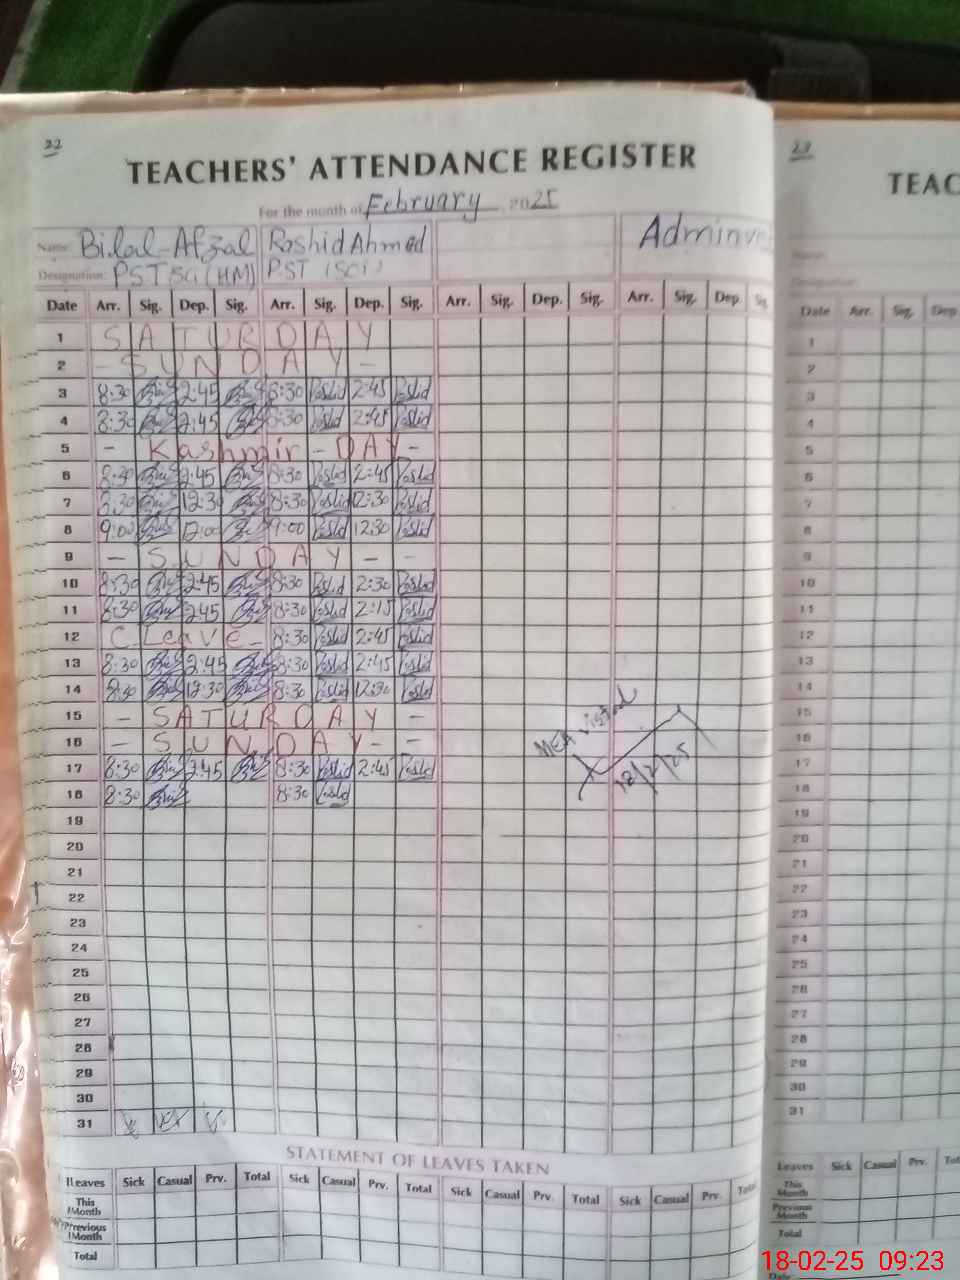 22
TEACHERS' ATTENDANCE REGISTER
For the month of February 2025
Name: Bilal Afzal Rashid Ahmed
Designation: PST (SCi) PST (SCi)
Date Arr. Sig. Dep. Sig. Arr. Sig. Dep. Sig. Arr. Sig. Dep. Sig. Arr. Sig. Dep.
1 SATURDAY
2 - SUNDAY -
3 8:30 2:45 8:30 2:45
4 8:30 2:45 8:30 2:45
5 - Kashmir - DAY -
6 8:30 2:45 8:30 2:45
7 8:30 12:30 8:30 12:30
8 9:00 12:00 9:00 1230
9 - SUNDAY - -
10 8:30 2:45 8:30 2:30
11 8:30 245 8:30 2:15
12 C. Leave - 8:30 2:45
13 8:30 2:45 8:30 2:45
14 8:30 12:30 8:30 12:30
15 - SATURDAY -
16 - SUNDAY - -
17 8:30 2:45 8:30 2:45
18 8:30 8:30
19
20
21
22
23
24
25
26
27
28
29
30
31
MEA visted
18/2/25
STATEMENT OF LEAVES TAKEN
Leaves Sick Casual Prv. Total Sick Casual Prv. Total Sick Casual Prv. Total Sick Casual Prv.
This Month
Previous Month
Total
23
TEAC
Date Arr. Sig. Dep.
1
2
3
4
5
6
7
8
9
10
11
12
13
14
15
16
17
18
19
20
21
22
23
24
25
26
27
28
29
30
31
Leaves Sick Casual Prv.
This Month
Previous Month
Total
18-02-25 09:23